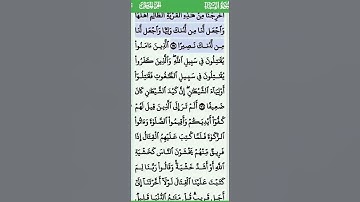 أَخْرِجْنَا مِنْ هَٰذِهِ ٱلْقَرْيَةِ ٱلظَّالِمِ أَهْلُهَا
وَٱجْعَل لَّنَا مِن لَّدُنكَ وَلِيًّا وَٱجْعَل لَّنَا
مِن لَّدُنكَ نَصِيرًا ٧٥ ٱلَّذِينَ ءَامَنُوا۟
يُقَٰتِلُونَ فِى سَبِيلِ ٱللَّهِ وَٱلَّذِينَ كَفَرُوا۟
يُقَٰتِلُونَ فِى سَبِيلِ ٱلطَّٰغُوتِ فَقَٰتِلُوٓا۟
أَوْلِيَآءَ ٱلشَّيْطَٰنِ إِنَّ كَيْدَ ٱلشَّيْطَٰنِ كَانَ
ضَعِيفًا ٧٦ أَلَمْ تَرَ إِلَى ٱلَّذِينَ قِيلَ لَهُمْ
كُفُّوٓا۟ أَيْدِيَكُمْ وَأَقِيمُوا۟ ٱلصَّلَوٰةَ وَءَاتُوا۟
ٱلزَّكَوٰةَ فَلَمَّا كُتِبَ عَلَيْهِمُ ٱلْقِتَالُ إِذَا
فَرِيقٌ مِّنْهُمْ يَخْشَوْنَ ٱلنَّاسَ كَخَشْيَةِ
ٱللَّهِ أَوْ أَشَدَّ خَشْيَةً وَقَالُوا۟ رَبَّنَا لِمَ
كَتَبْتَ عَلَيْنَا ٱلْقِتَالَ لَوْلَآ أَخَّرْتَنَآ إِلَىٰٓ
أَجَلٍ قَرِيبٍ قُلْ مَتَٰعُ ٱلدُّنْيَا قَلِيلٌ